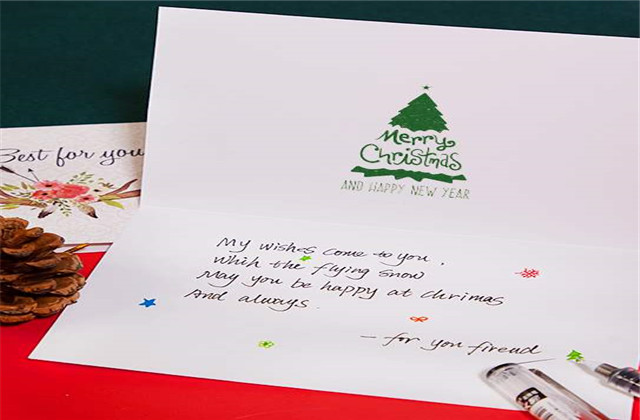 Best for you
Merry
Christmas
AND HAPPY NEW YEAR
My wishes come to you,
Which the flying snow
May you be happy at chrimas
And always.
— for you fireud